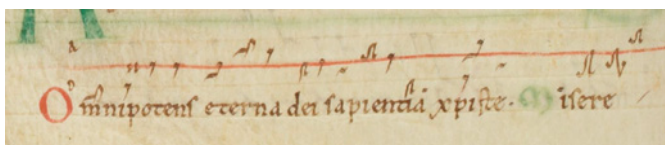 Omnipotens eterna dei sapientia xpiste. Misere